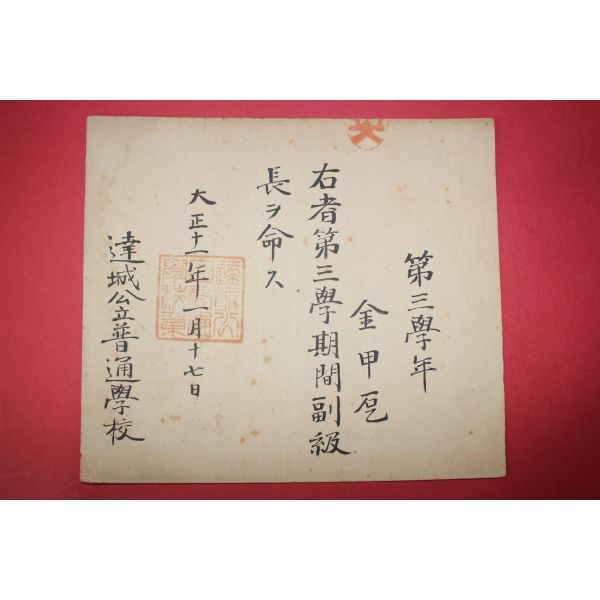 第三學年
金甲㐗
右者第三學期間副級
長ヲ命ス
大正十一年一月十七日
達城公立普通學校